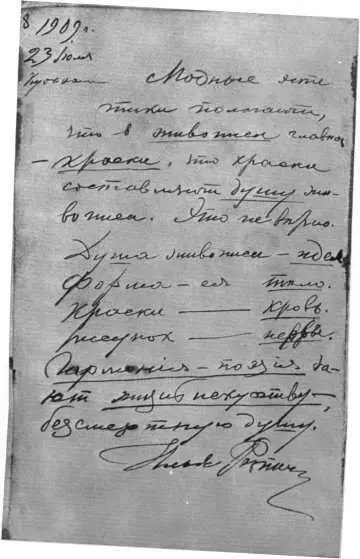 8 1909 г.
23 Iюля
Куоккала
Модные эсте
тики полагают,
что в живописи главное
– краски, что краски
составляют душу жи-
вописи. Это не вѣрно.
Душа живописи – идея
Форма – ея тѣло.
Краски — кровь.
рисунок — нервы.
Гармонія – поэзія да-
ют жизнь искусству –
безсмертную душу.
Илья Рѣпин